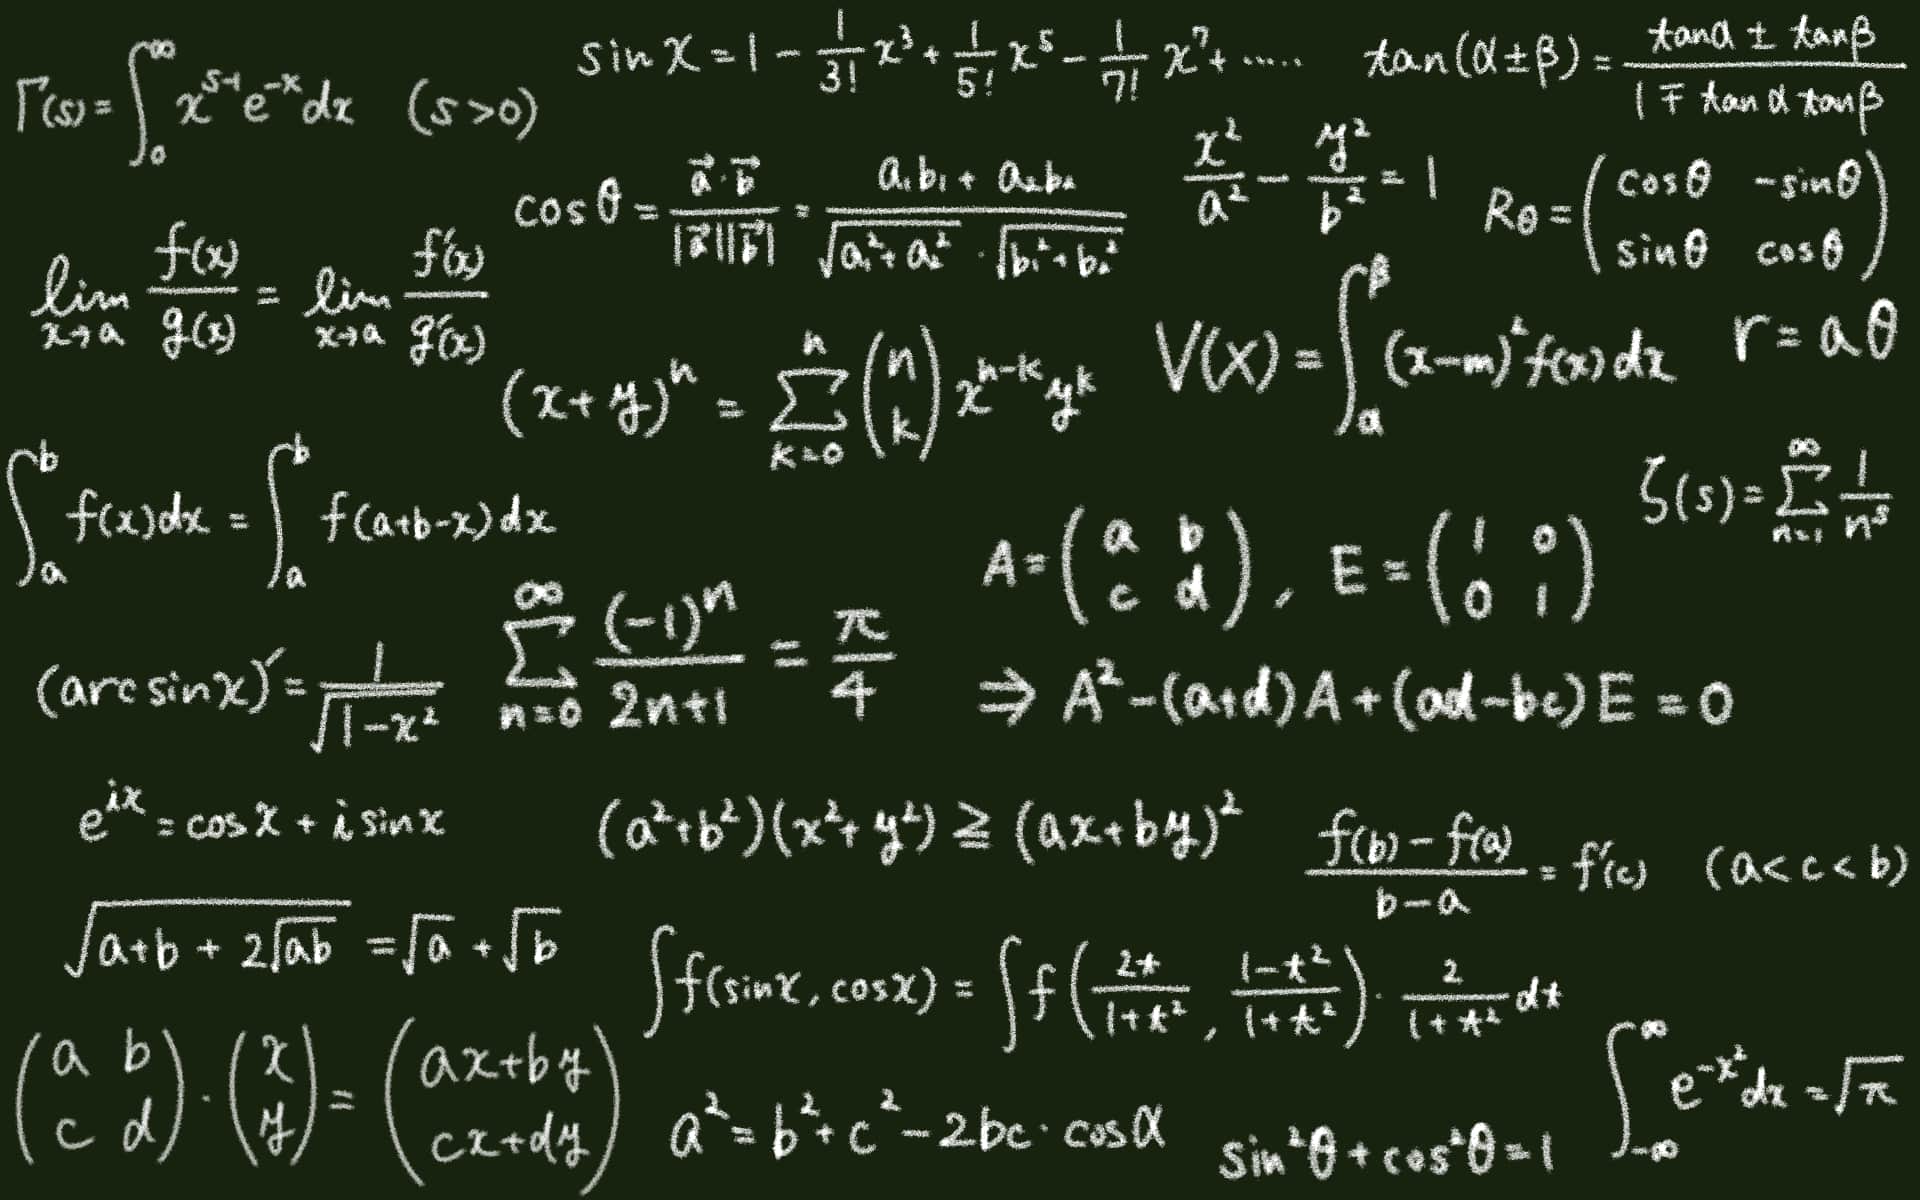 Γ(s) = ∫₀^∞ x^(s-1) e^(-x) dx (s>0)
sin x = 1 - 1/3! x³ + 1/5! x⁵ - 1/7! x⁷ + .....
tan(α±β) = (tanα ± tanβ)/(1 ∓ tanα tanβ)
cosθ = (a⃗·b⃗)/(|a⃗||b⃗|) = (a₁b₁ + a₂b₂)/(√(a₁²+a₂²)·√(b₁²+b₂²))
x²/a² - y²/b² = 1
Rθ = (cosθ -sinθ
sinθ cosθ)
lim_(x→a) f(x)/g(x) = lim_(x→a) f′(x)/g′(x)
(x+y)ⁿ = Σ_(k=0)^n (n k) x^(n-k) y^k
V(X) = ∫_α^β (x-m)² f(x) dx
r = aθ
∫_a^b f(x)dx = ∫_a^b f(a+b-x)dx
A = (a b
c d), E = (1 0
0 1)
ζ(s) = Σ_(n=1)^∞ 1/n^s
(arcsin x)′ = 1/√(1-x²)
Σ_(n=0)^∞ (-1)ⁿ/(2n+1) = π/4
⇒ A² - (a+d)A + (ad-bc)E = 0
e^(ix) = cos x + i sin x
(a²+b²)(x²+y²) ≧ (ax+by)²
(f(b)-f(a))/(b-a) = f′(c) (a<c<b)
√(a+b+2√(ab)) = √a + √b
∫f(sinx, cosx) = ∫f(2t/(1+t²), (1-t²)/(1+t²))·2/(1+t²) dt
(a b
c d)·(x
y) = (ax+by
cx+dy)
a² = b² + c² - 2bc·cosα
sin²θ + cos²θ = 1
∫_(-∞)^∞ e^(-x²) dx = √π